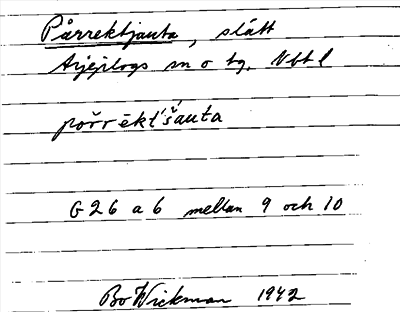 Pårrektjauta, slått
Arjeplogs sn o tg. Nbtl
pořrēkt'š́auta
G 26 a 6 mellan 9 och 10
Bo Wickman 1942